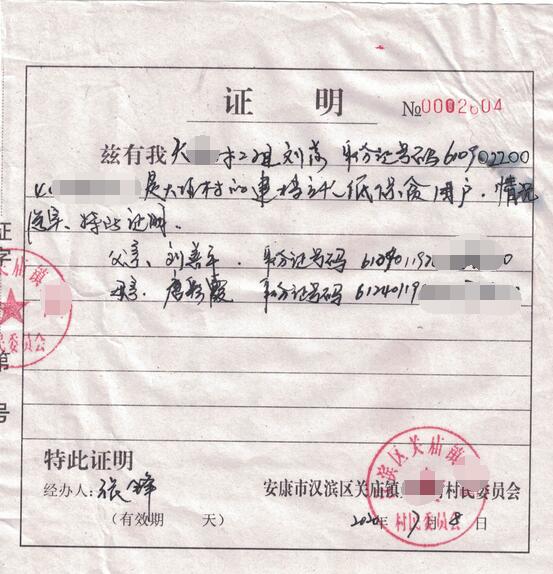 证 明
№0002604
兹有我大 村二组刘芳 身份证号码610902200
是大 村的建档立卡低保贫困户,情况
属实、特此证明.
父亲、刘善军、身份证号码 612401197 0
母亲、唐琴霞 身份证号码 61240119
证
字
第
号
关庙镇
民委员会
特此证明
经办人:张锋
安康市汉滨区关庙镇 村民委员会
(有效期 天)
2020年7月8日
滨区关庙镇
村民委员会